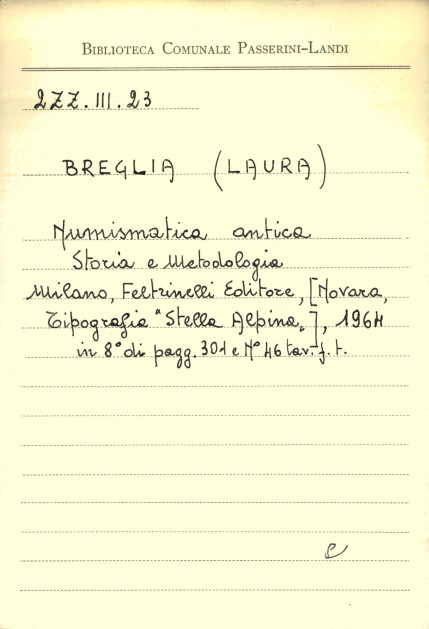 BIBLIOTECA COMUNALE PASSERINI-LANDI
2ZZ.III.23
BREGLIA (LAURA)
Numismatica antica
Storia e Metodologia
Milano, Feltrinelli Editore, [Novara,
Tipografia "Stella Alpina„], 1964
in 8° di pagg. 301 e N° 46 tav. f. t.